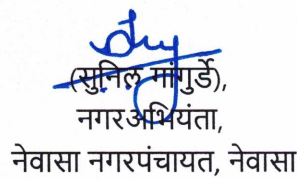 (सुनिल मांगुर्डे),
नगरअभियंता,
नेवासा नगरपंचायत, नेवासा